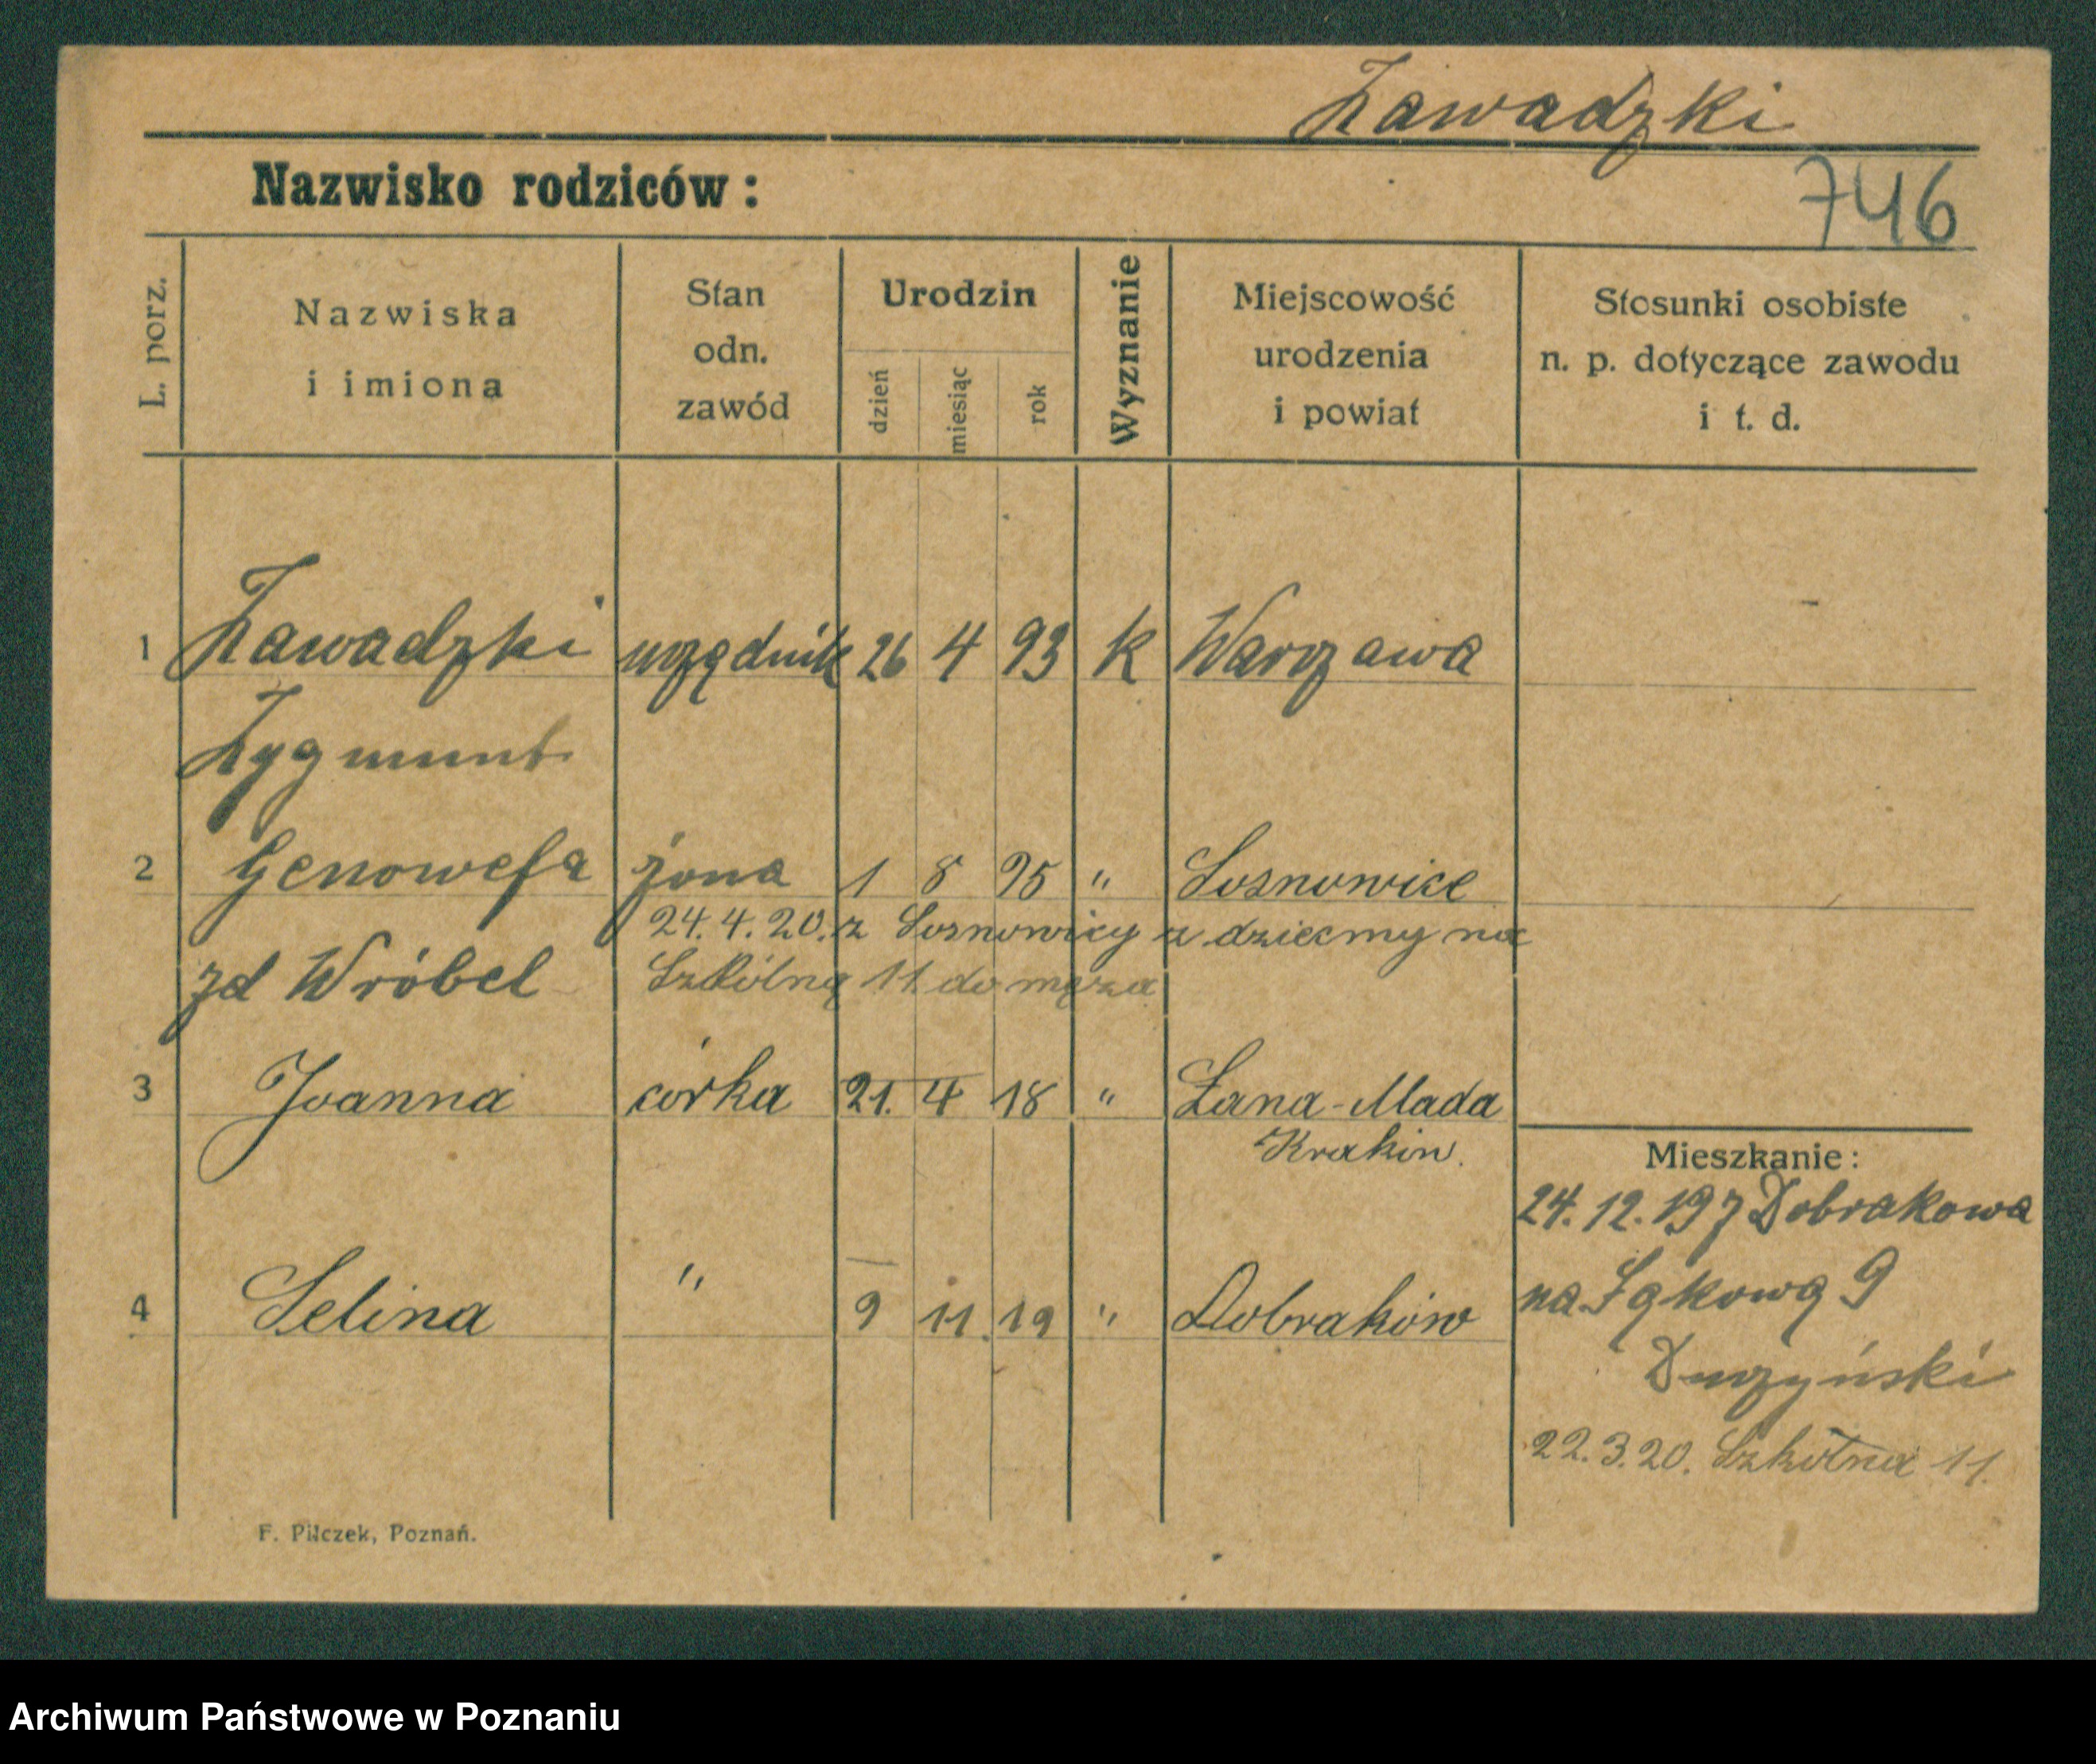 Zawadzki
Nazwisko rodziców:
746
L. porz.
Nazwiska i imiona
Stan odn. zawód
Urodzin
dzień
miesiąc
rok
Wyznanie
Miejscowość urodzenia i powiat
Stosunki osobiste n. p. dotyczące zawodu i t. d.
1 Zawadzki urzędnik 26 4 93 K Warszawa
Zygmunt
2 Genowefa żona 1 8 95 " Sosnowice
24.4.20. z Sosnowicy z dziecmy na
zd Wróbel Szkólną 11 do męża
3 Joanna córka 21. 4 18 " Łana-Mada
Kraków.
Mieszkanie:
24.12.19 z Dobrakowa
4 Selina " 9 11. 19 " Dobraków
na Łąkową 9
22.3.20. Szkolna 11.
F. Pilczek, Poznań.
Archiwum Państwowe w Poznaniu